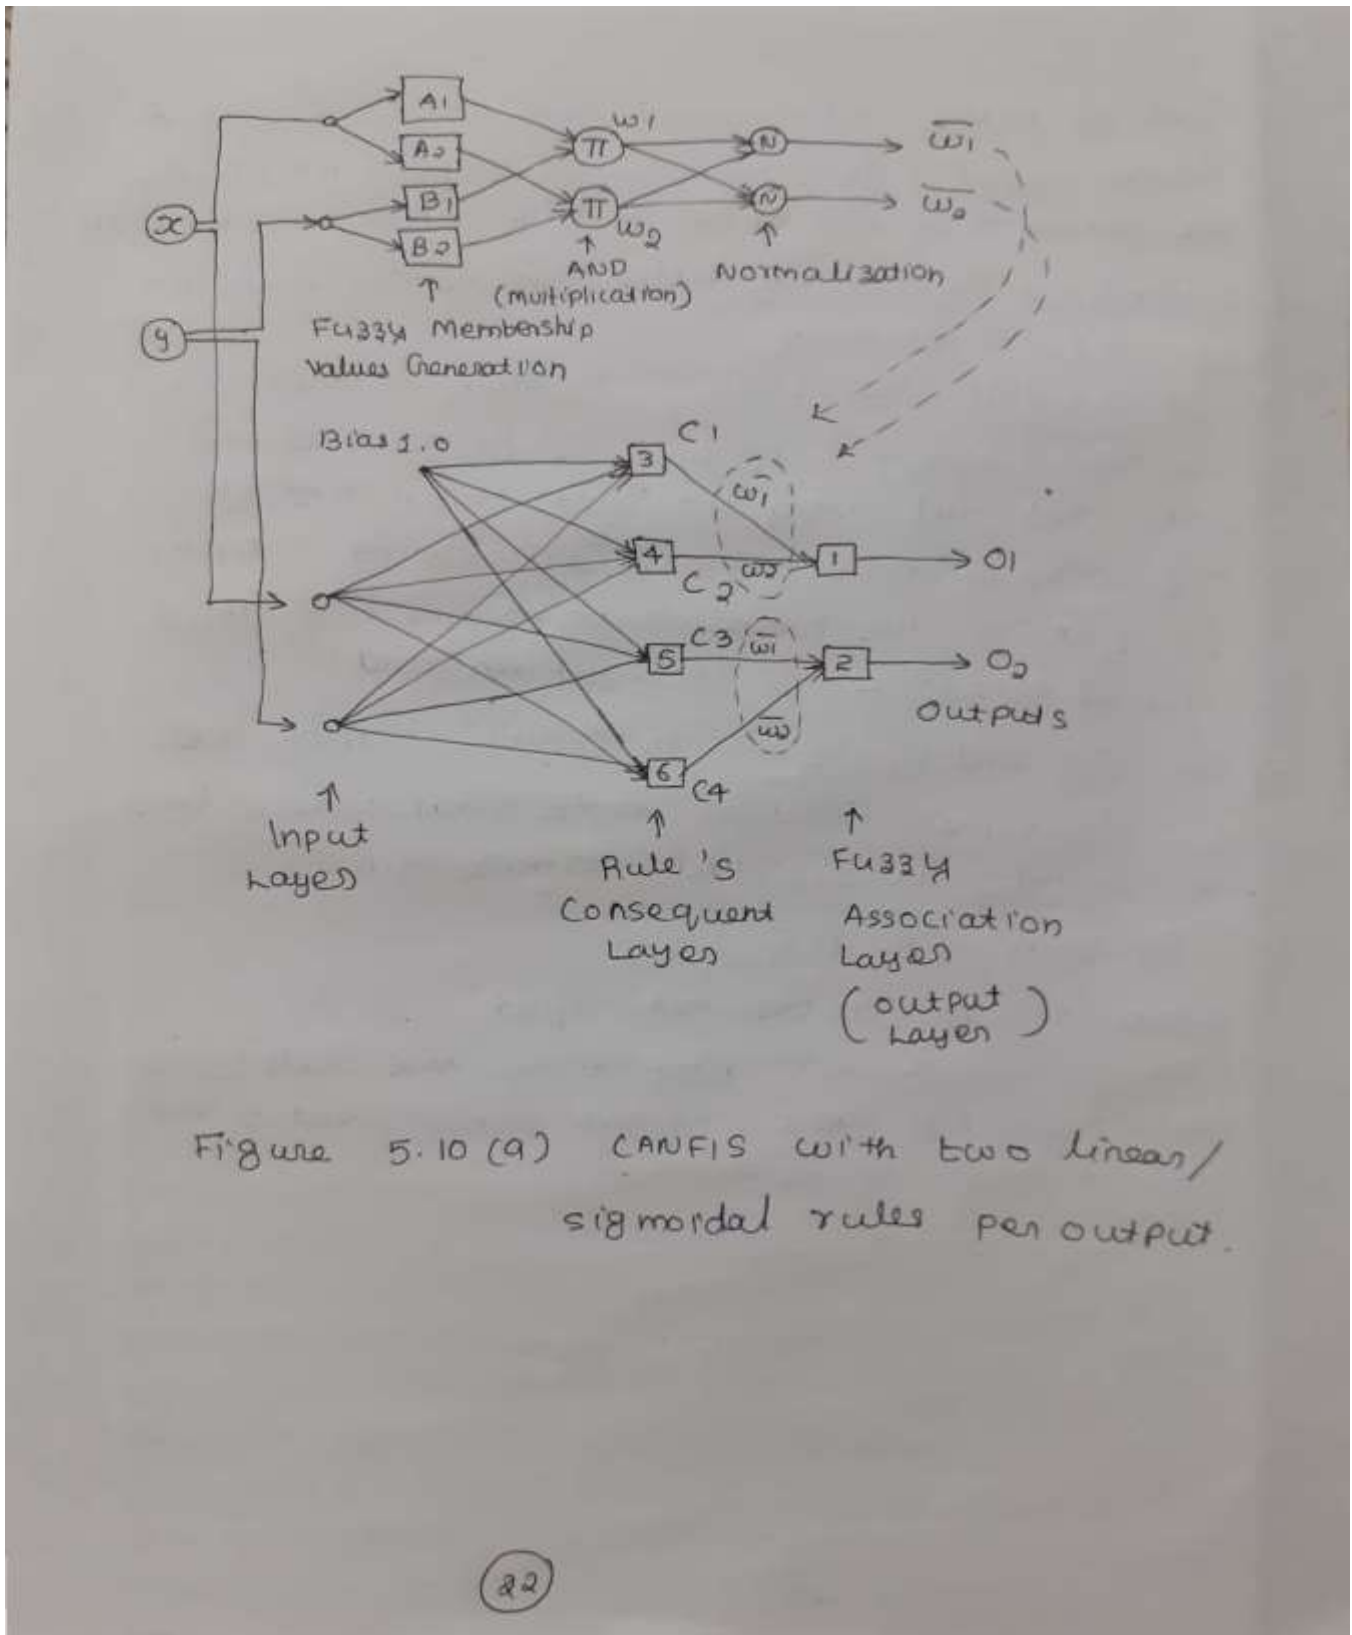 A1
A2
B1
B2
x
y
π
π
w1
w2
N
N
w̅1
w̅2
AND
(multiplication)
Normalization
Fuzzy Membership
values Generation
Bias 1.0
3
C1
w̅1
4
C2
w̅2
1
O1
5
C3
w̅1
2
O2
Outputs
w̅2
6
C4
Input
Layer
Rule's
Consequent
Layer
Fuzzy
Association
Layer
(output
Layer)
Figure 5.10 (a) CANFIS with two linear/
sigmoidal rules per output.
22